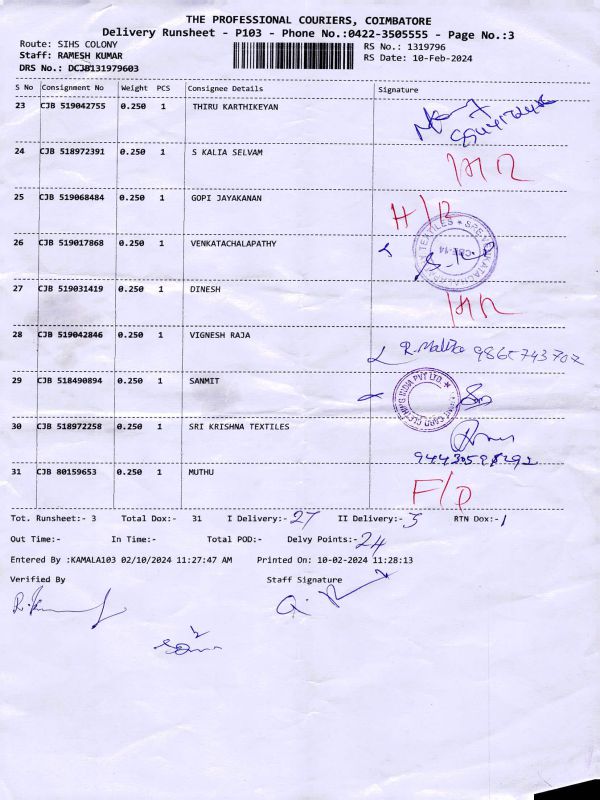 THE PROFESSIONAL COURIERS, COIMBATORE
Delivery Runsheet - P103 - Phone No.:0422-3505555 - Page No.:3
Route: SIHS COLONY
RS No.: 1319796
Staff: RAMESH KUMAR
RS Date: 10-Feb-2024
DRS No.: DCJB131979603
S No Consignment No Weight PCS Consignee Details Signature
23 CJB 519042755 0.250 1 THIRU KARTHIKEYAN
24 CJB 518972391 0.250 1 S KALIA SELVAM
25 CJB 519068484 0.250 1 GOPI JAYAKANAN
26 CJB 519017868 0.250 1 VENKATACHALAPATHY
27 CJB 519031419 0.250 1 DINESH
28 CJB 519042846 0.250 1 VIGNESH RAJA
29 CJB 518490894 0.250 1 SANMIT
30 CJB 518972258 0.250 1 SRI KRISHNA TEXTILES
31 CJB 80159653 0.250 1 MUTHU F/D
Tot. Runsheet:- 3 Total Dox:- 31 I Delivery:- 27 II Delivery:- 3 RTN Dox:- 1
Out Time:- In Time:- Total POD:- Delvy Points:- 24
Entered By :KAMALA103 02/10/2024 11:27:47 AM Printed On: 10-02-2024 11:28:13
Verified By Staff Signature